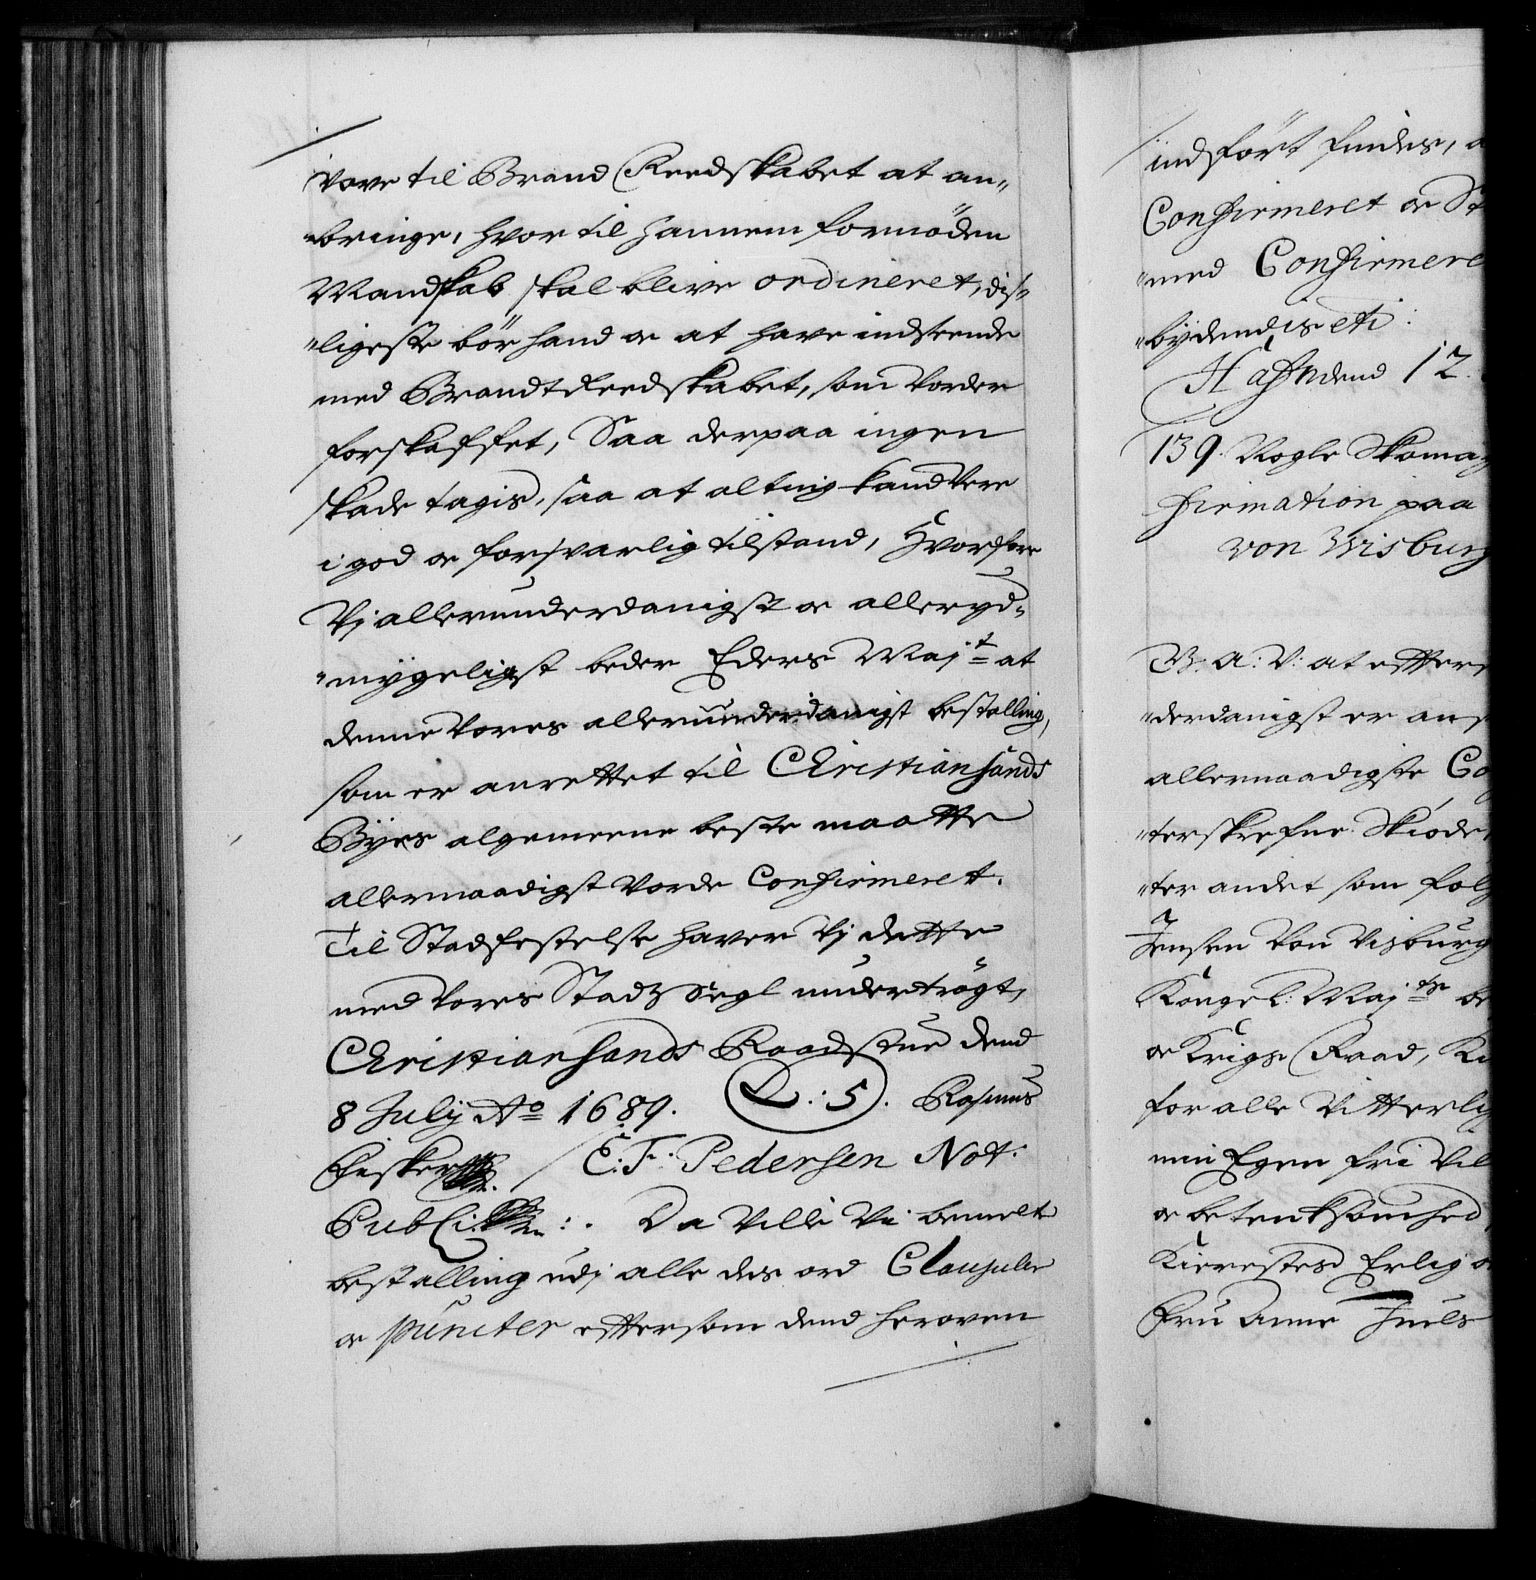 vove til Brand Reedskabet at an„
„bringe, hvor til hannem fornöden
Mandskab skal blive ordineret, dis„
„ligeste bör hand oc at have indseende
med Brandt Reedskabet, som vorder
forskaffet, Saa derpaa ingen
skade tagis, saa at alting kand være
i god oc forsvarlig tilstand, Hvordfore
Vj allerunderdanigst oc allerÿd„
„mÿgeligst beder Eders Maj:t at
denne vores allerunderdanigst bestalling,
som er anrettet til Christiansands
Bÿes algemeene beste maatte
allernaadigst vorde Confirmeret.
Til Stadfestelse haver Vj dette
med vores Stadz Segl undertrögt,
Christiansands Raadstue dend
8 Julij Ao 1689. L: S. Rasmus
Fisker / C: F: Pedersen Not:
Publi: Da Ville Vi bemelte
bestalling udj alle des ord Clausuler
oc puncter eftersom dend heroven
indfört findes,
Confirmeret oc St
„med Confirmere
„bÿdendis etc:
Hafn dend 12.
139. Nogle Skomag
firmation paa
von Wisburg
V. A: V: at efters
„derdanigst er ans
allernaadigste Co
„terskrefne Skiöde
„ter andet som fölg
Jensen von Visburg
Kongel: Maj:ts be
oc Krigs Raad, K
for alle Vitterlig
min Egen fri Vil
oc betenksomhed
Kierested Erlig o
Fru Anne Juels